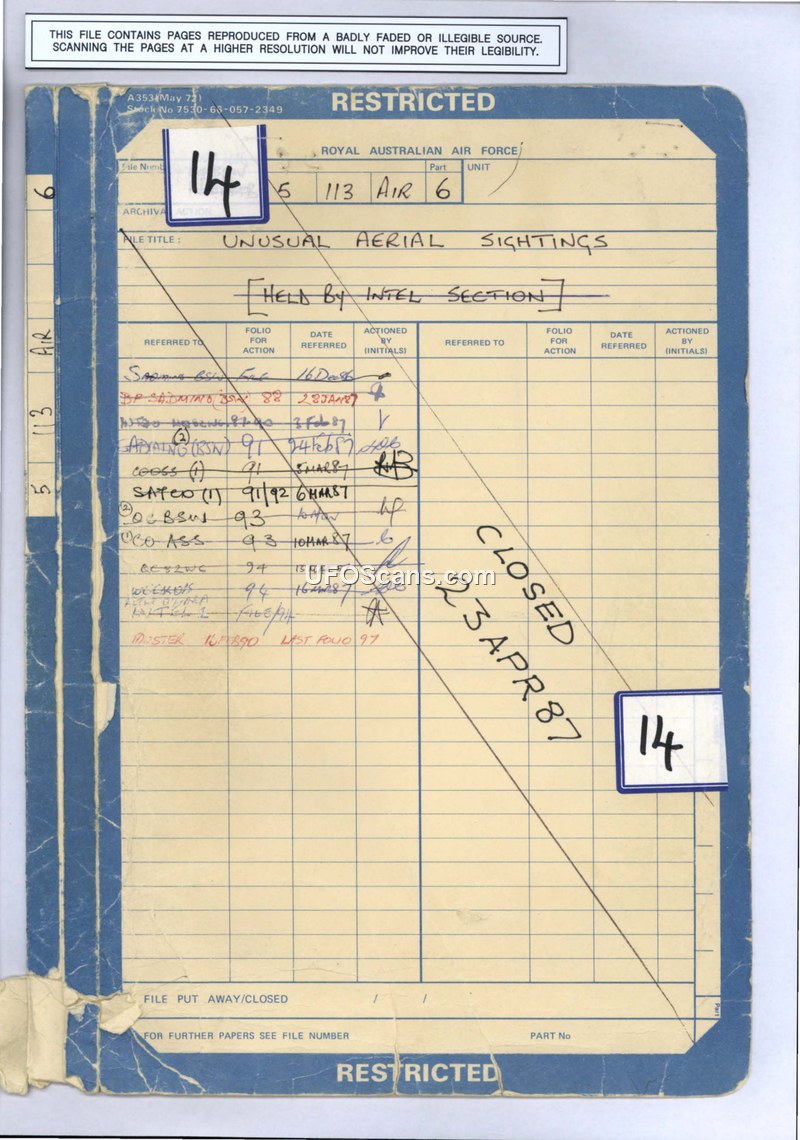 THIS FILE CONTAINS PAGES REPRODUCED FROM A BADLY FADED OR ILLEGIBLE SOURCE.
SCANNING THE PAGES AT A HIGHER RESOLUTION WILL NOT IMPROVE THEIR LEGIBILITY.
A353 (May 72)
Stock No 7530-66-057-2349
RESTRICTED
ROYAL AUSTRALIAN AIR FORCE
File Numb Part UNIT
14 5 113 AIR 6
ARCHIVA
FILE TITLE: UNUSUAL AERIAL SIGHTINGS
[HELD BY INTEL SECTION]
REFERRED TO FOLIO FOR ACTION DATE REFERRED ACTIONED BY (INITIALS) REFERRED TO FOLIO FOR ACTION DATE REFERRED ACTIONED BY (INITIALS)
88 28 JAN 87
3 Feb 87
(2) (BSN) 91 24 Feb 87
(1) 91 5 MAR 87
SATCO (1) 91/92 6 MAR 87
(2) BSW 93
(1) CO ASS 93 10 MAR 87
94
94 16 MAR 87
MUSTER 16 FEB 90 LAST FOLIO 97
CLOSED
23 APR 87
14
UFOScans.com
FILE PUT AWAY/CLOSED / /
FOR FURTHER PAPERS SEE FILE NUMBER PART No
RESTRICTED
5 113 AIR 6